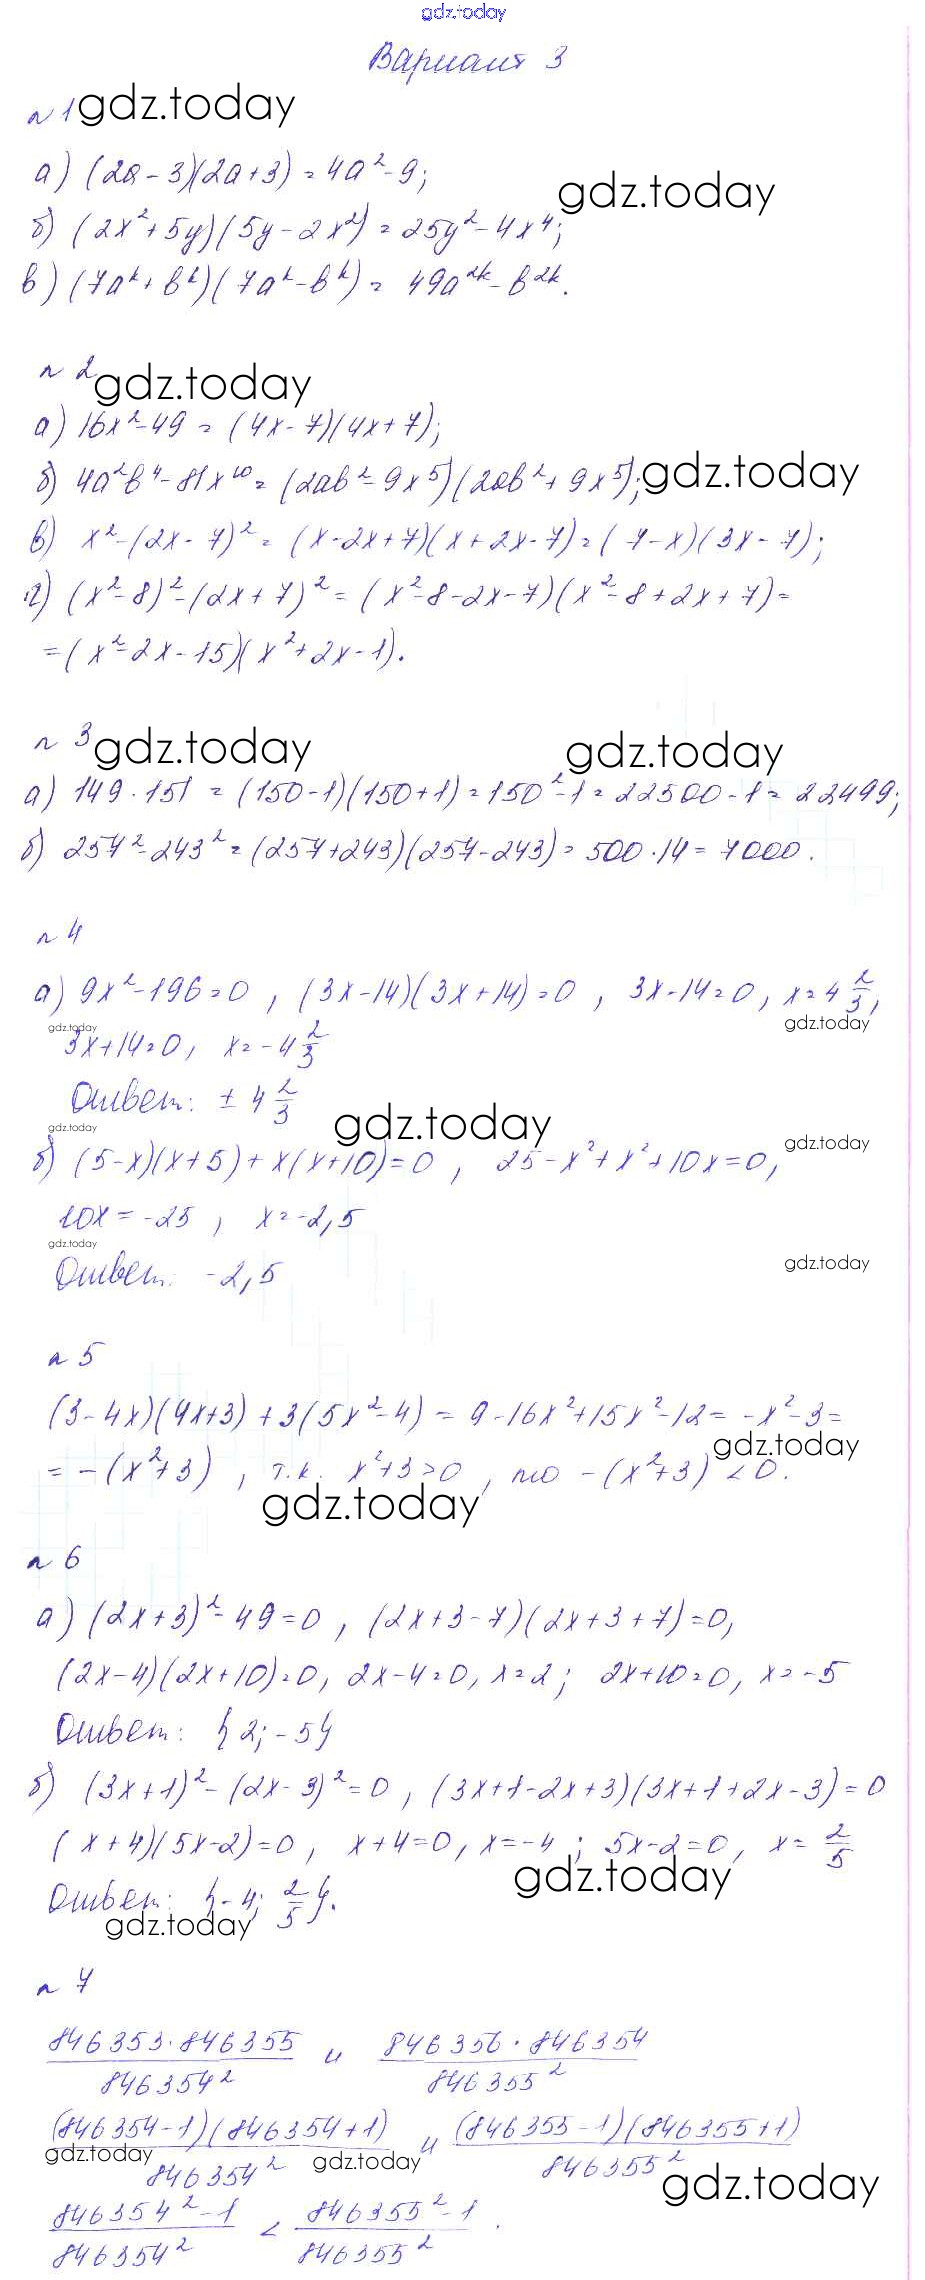 gdz.today
Вариант 3
n 1 gdz.today
а) (2a - 3)(2a + 3) = 4a² - 9;
gdz.today
б) (2x² + 5y)(5y - 2x²) = 25y² - 4x⁴;
в) (7aᵏ + bᵏ)(7aᵏ - bᵏ) = 49a²ᵏ - b²ᵏ.
n 2 gdz.today
а) 16x² - 49 = (4x - 7)(4x + 7);
б) 4a²b⁴ - 81x¹⁰ = (2ab² - 9x⁵)(2ab² + 9x⁵); gdz.today
в) x² - (2x - 7)² = (x - 2x + 7)(x + 2x - 7) = (7 - x)(3x - 7);
г) (x² - 8)² - (2x + 7)² = (x² - 8 - 2x - 7)(x² - 8 + 2x + 7) =
= (x² - 2x - 15)(x² + 2x - 1).
n 3 gdz.today gdz.today
а) 149 · 151 = (150 - 1)(150 + 1) = 150² - 1 = 22500 - 1 = 22499;
б) 257² - 243² = (257 + 243)(257 - 243) = 500 · 14 = 7000.
n 4
а) 9x² - 196 = 0, (3x - 14)(3x + 14) = 0, 3x - 14 = 0, x = 4 2/3,
gdz.today gdz.today
3x + 14 = 0, x = -4 2/3
Ответ: ± 4 2/3
gdz.today gdz.today gdz.today
б) (5 - x)(x + 5) + x(x + 10) = 0, 25 - x² + x² + 10x = 0,
10x = -25, x = -2,5
gdz.today gdz.today
Ответ: -2,5
n 5
(3 - 4x)(4x + 3) + 3(5x² - 4) = 9 - 16x² + 15x² - 12 = -x² - 3 =
gdz.today
= -(x² + 3), т.к. x² + 3 > 0, то -(x² + 3) < 0.
gdz.today
n 6
а) (2x + 3)² - 49 = 0, (2x + 3 - 7)(2x + 3 + 7) = 0,
(2x - 4)(2x + 10) = 0, 2x - 4 = 0, x = 2; 2x + 10 = 0, x = -5
Ответ: {2; -5}
б) (3x + 1)² - (2x - 3)² = 0, (3x + 1 - 2x + 3)(3x + 1 + 2x - 3) = 0
(x + 4)(5x - 2) = 0, x + 4 = 0, x = -4; 5x - 2 = 0, x = 2/5
gdz.today
Ответ: {-4; 2/5}.
gdz.today
n 7
846353 · 846355 / 846354² и 846356 · 846354 / 846355²
(846354 - 1)(846354 + 1) / 846354² и (846355 - 1)(846355 + 1) / 846355²
gdz.today gdz.today gdz.today
846354² - 1 / 846354² < 846355² - 1 / 846355².